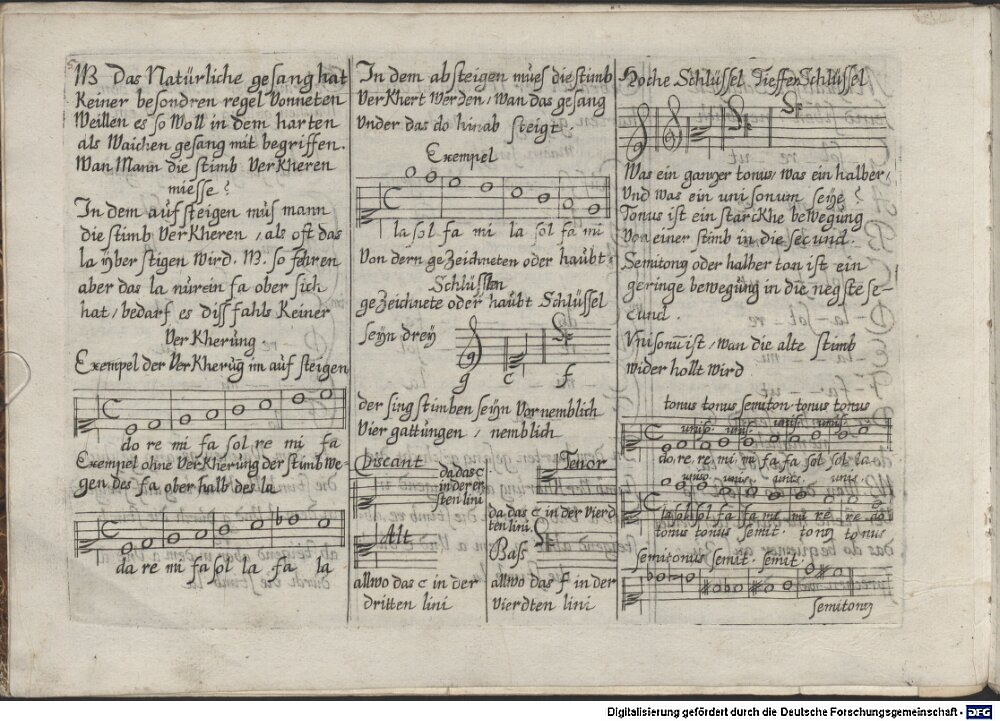 NB Das Natürliche gesang hat
Keiner besondren regel Vonneten
Weillen es so Woll in dem harten
als Waichen gesang mit begriffen.
Wan Mann die stimb Verkheren
miesse?
In dem aufsteigen müs mann
die stimb Verkheren, als oft das
la ÿber stigen Wird. NB. so fehren
aber das la nur ein fa ober sich
hat, bedarf es diss fahls Keiner
Verkherung.
Exempel der Verkherūg im auf steigen
do re mi fa sol re mi fa
Exempel ohne Verkherung der stimb we-
gen des fa ober halb des la
da re mi fa sol la fa la
In dem absteigen mues die stimb
Verkhert Werden, wan das gesang
Vnder das do hinab steigt.
Exempel
la sol fa mi la sol fa mi
Von dern gezeichneten oder haubt-
Schlüsslen
gezeichnete oder haubt Schlüssel
seÿn dreÿ
g c f
der singstimben seÿn Vornemblich
Vier gattungen, nemblich
Discant
da das c
in der er-
sten lini
Alt
allwo das c in der
dritten lini
Tenor
da das c in der Vierd
ten lini.
Bass
allwo das f in der
Vierdten lini
Hoche Schlüssel Tieffer Schlüssel
Was ein ganzer tonus, was ein halber,
Vnd was ein uni sonum seÿe?
Tonus ist ein starckhe beWegung
Von einer stimb in die secund.
Semitong oder halber ton ist ein
geringe bewegung in die negste se-
cund.
Vnisonū ist, wan die alte stimb
wider hollt wird
tonus tonus semiton. tonus tonus
uniso. uni. unis. unis.
do, re, re, mi, mi, fa, fa sol sol la
uniso unis. unis. unis.
la sol sol fa fa mi mi re re do
tonus tonus semit. tong tonus
semitonus semit. semit.
semitong
Digitalisierung gefördert durch die Deutsche Forschungsgemeinschaft - DFG